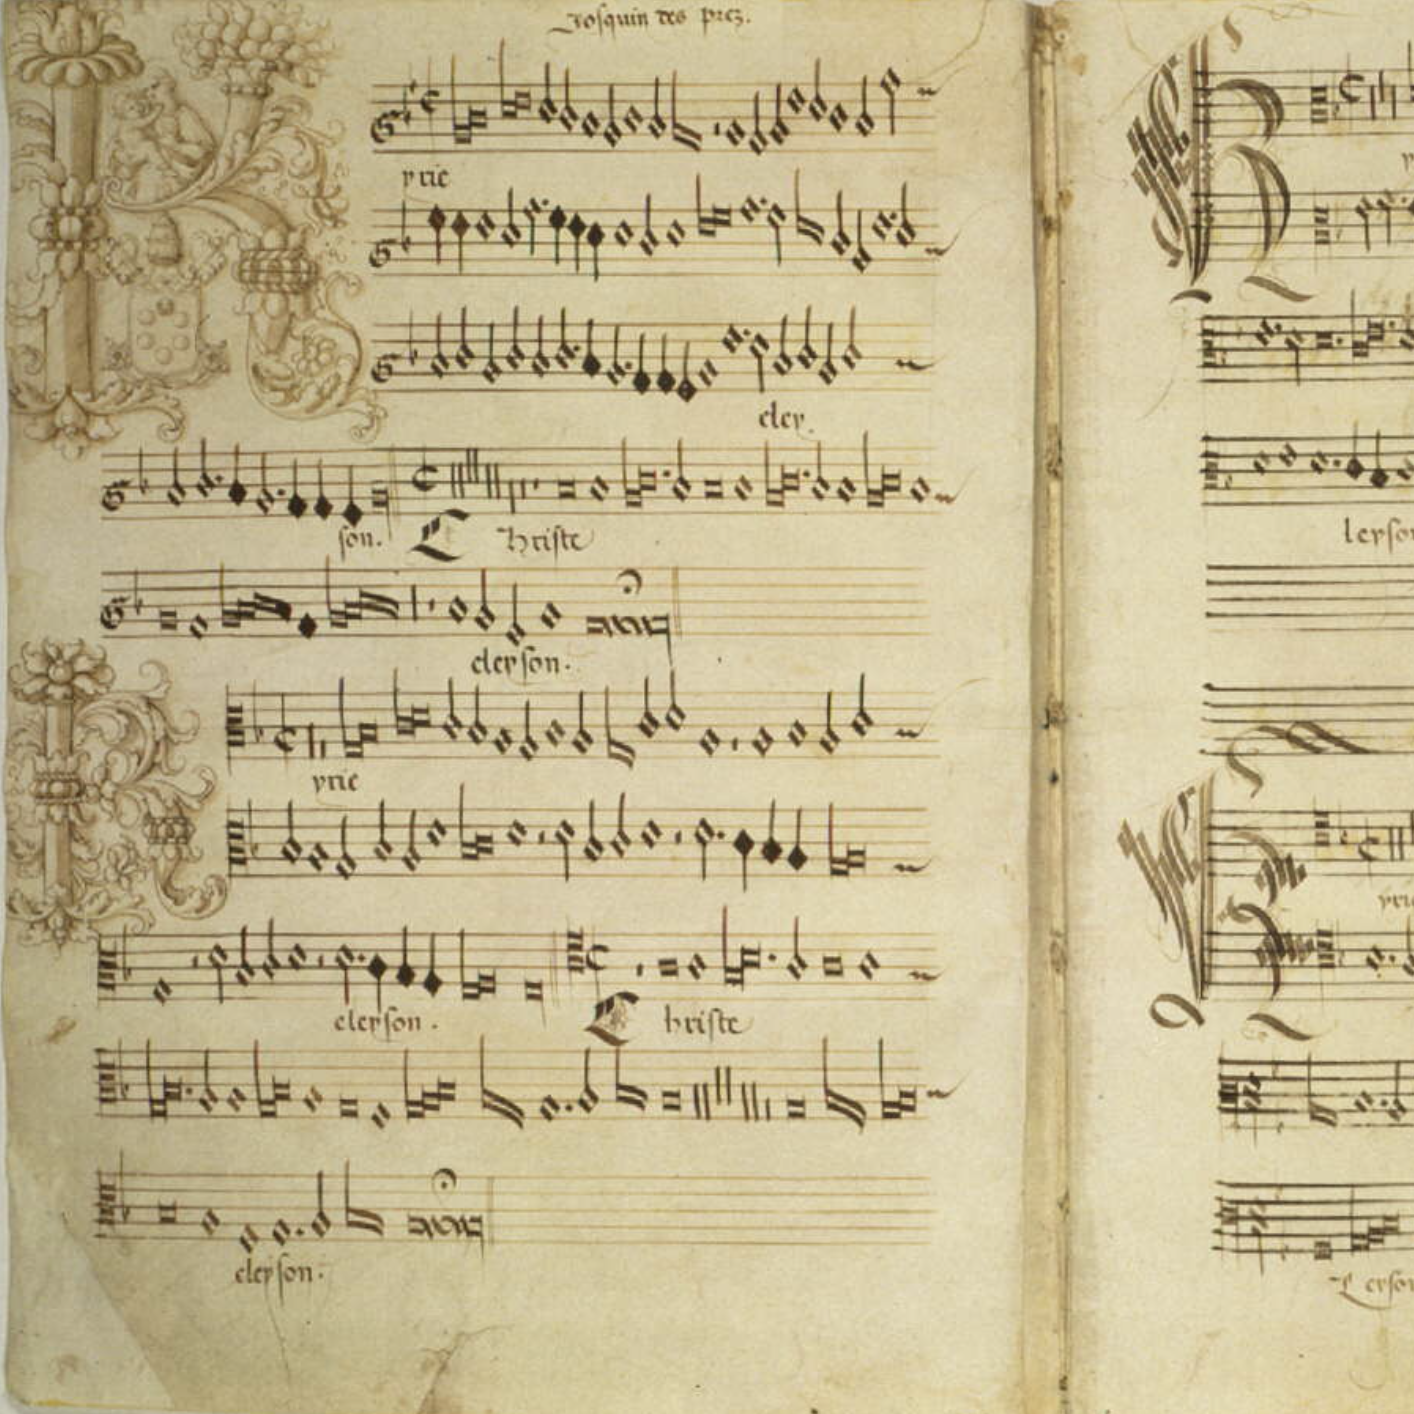 Josquin des prez.
K yrie
eley.
son. C hriste
eleyson.
K yrie
eleyson. C hriste
eleyson.
leyso
yrie
Leyso